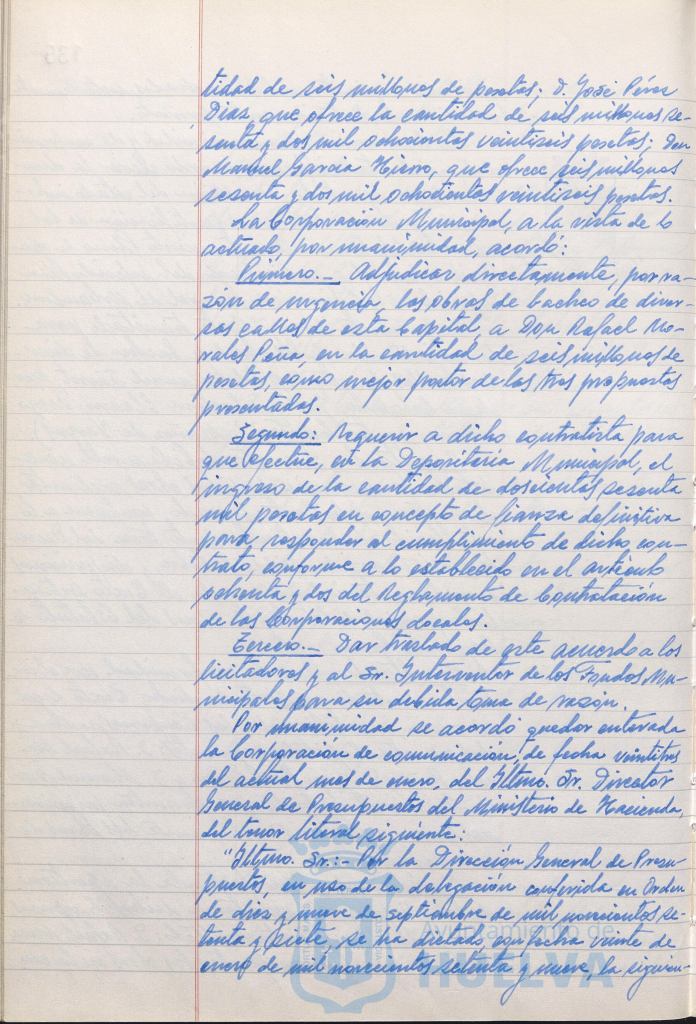 tidad de seis millones de pesetas; D. José Pérez
Diaz, que ofrece la cantidad de seis millones se-
senta y dos mil ochocientas veintiseis pesetas; Don
Manuel Garcia Hierro, que ofrece seis millones
sesenta y dos mil ochocientas veintiseis pesetas.
La Corporación Municipal, a la vista de lo
actuado, por unanimidad, acordó:
Primero.- Adjudicar directamente, por ra-
zón de urgencia, las obras de bacheo de diver-
sas calles de esta Capital, a Don Rafael Mo-
rales Peña, en la cantidad de seis millones de
pesetas, como mejor postor de las tres propuestas
presentadas.
Segundo: Requerir a dicho contratista para
que efectue, en la Depositaría Municipal, el
ingreso de la cantidad de doscientas sesenta
mil pesetas en concepto de fianza definitiva
para responder al cumplimiento de dicho con-
trato, conforme a lo establecido en el artículo
ochenta y dos del Reglamento de Contratación
de las Corporaciones Locales.
Tercero.- Dar traslado de este acuerdo a los
licitadores y al Sr. Interventor de los Fondos Mu-
nicipales para su debida toma de razón.
Por unanimidad se acordó quedar enterada
la Corporación de comunicación, de fecha veintitres
del actual mes de enero, del Iltmo. Sr. Director
General de Presupuestos del Ministerio de Hacienda,
del tenor literal siguiente:
"Iltmo. Sr.:- Por la Dirección General de Presu-
puestos, en uso de la delegación conferida en Orden
de diez y nueve de septiembre de mil novecientos se-
tenta y siete, se ha dictado, con fecha veinte de
enero de mil novecientos setenta y nueve, la siguien-
Ayuntamiento de
HUELVA